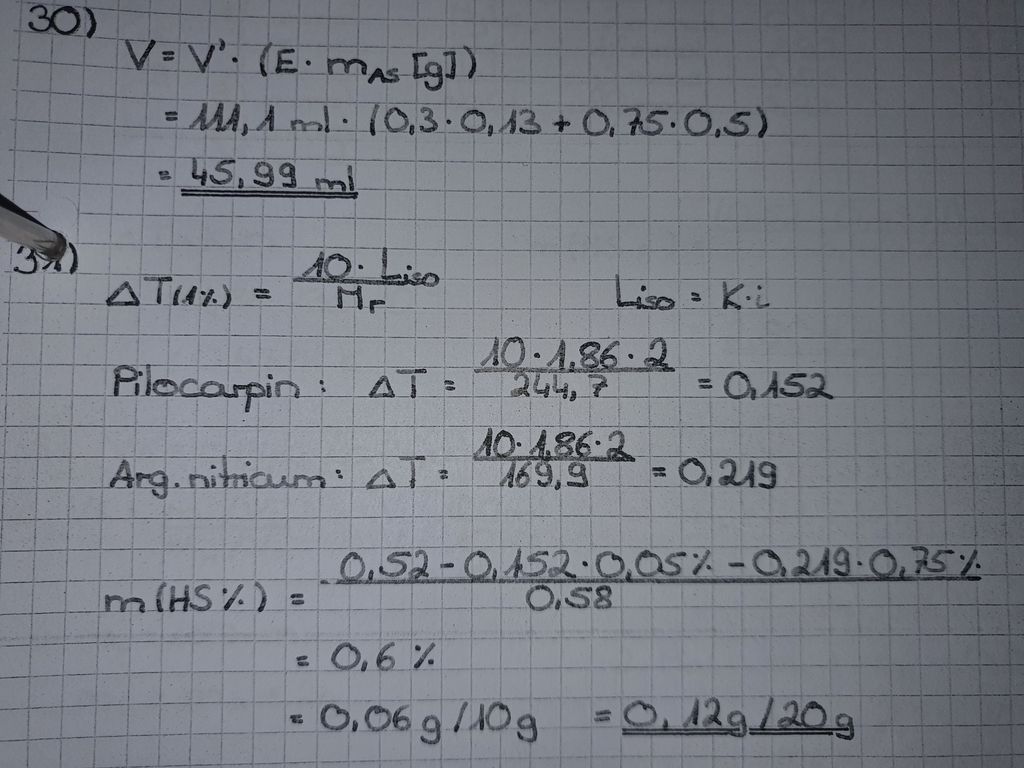 30)
V = V' · (E · mAS [g])
= 111,1 ml · (0,3 · 0,13 + 0,75 · 0,5)
= 45,99 ml
31)
ΔT(1%) = 10 · Liso / Mr   Liso = K·i
Pilocarpin : ΔT = 10 · 1,86 · 2 / 244,7 = 0,152
Arg. nitricum : ΔT = 10 · 1,86 · 2 / 169,9 = 0,219
m (HS%) = 0,52 - 0,152 · 0,05% - 0,219 · 0,75% / 0,58
= 0,6 %
= 0,06 g /10 g   = 0,12g /20 g